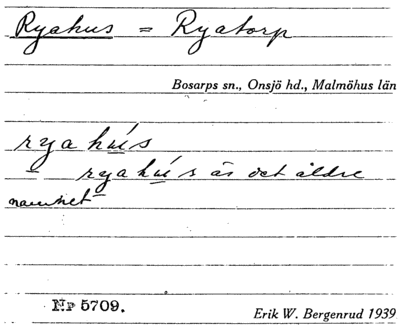 Ryahus = Ryatorp
Bosarps sn., Onsjö hd., Malmöhus län
ryahús
ryahús är det äldre
namnet
Nr 5709.
Erik W. Bergenrud 1939